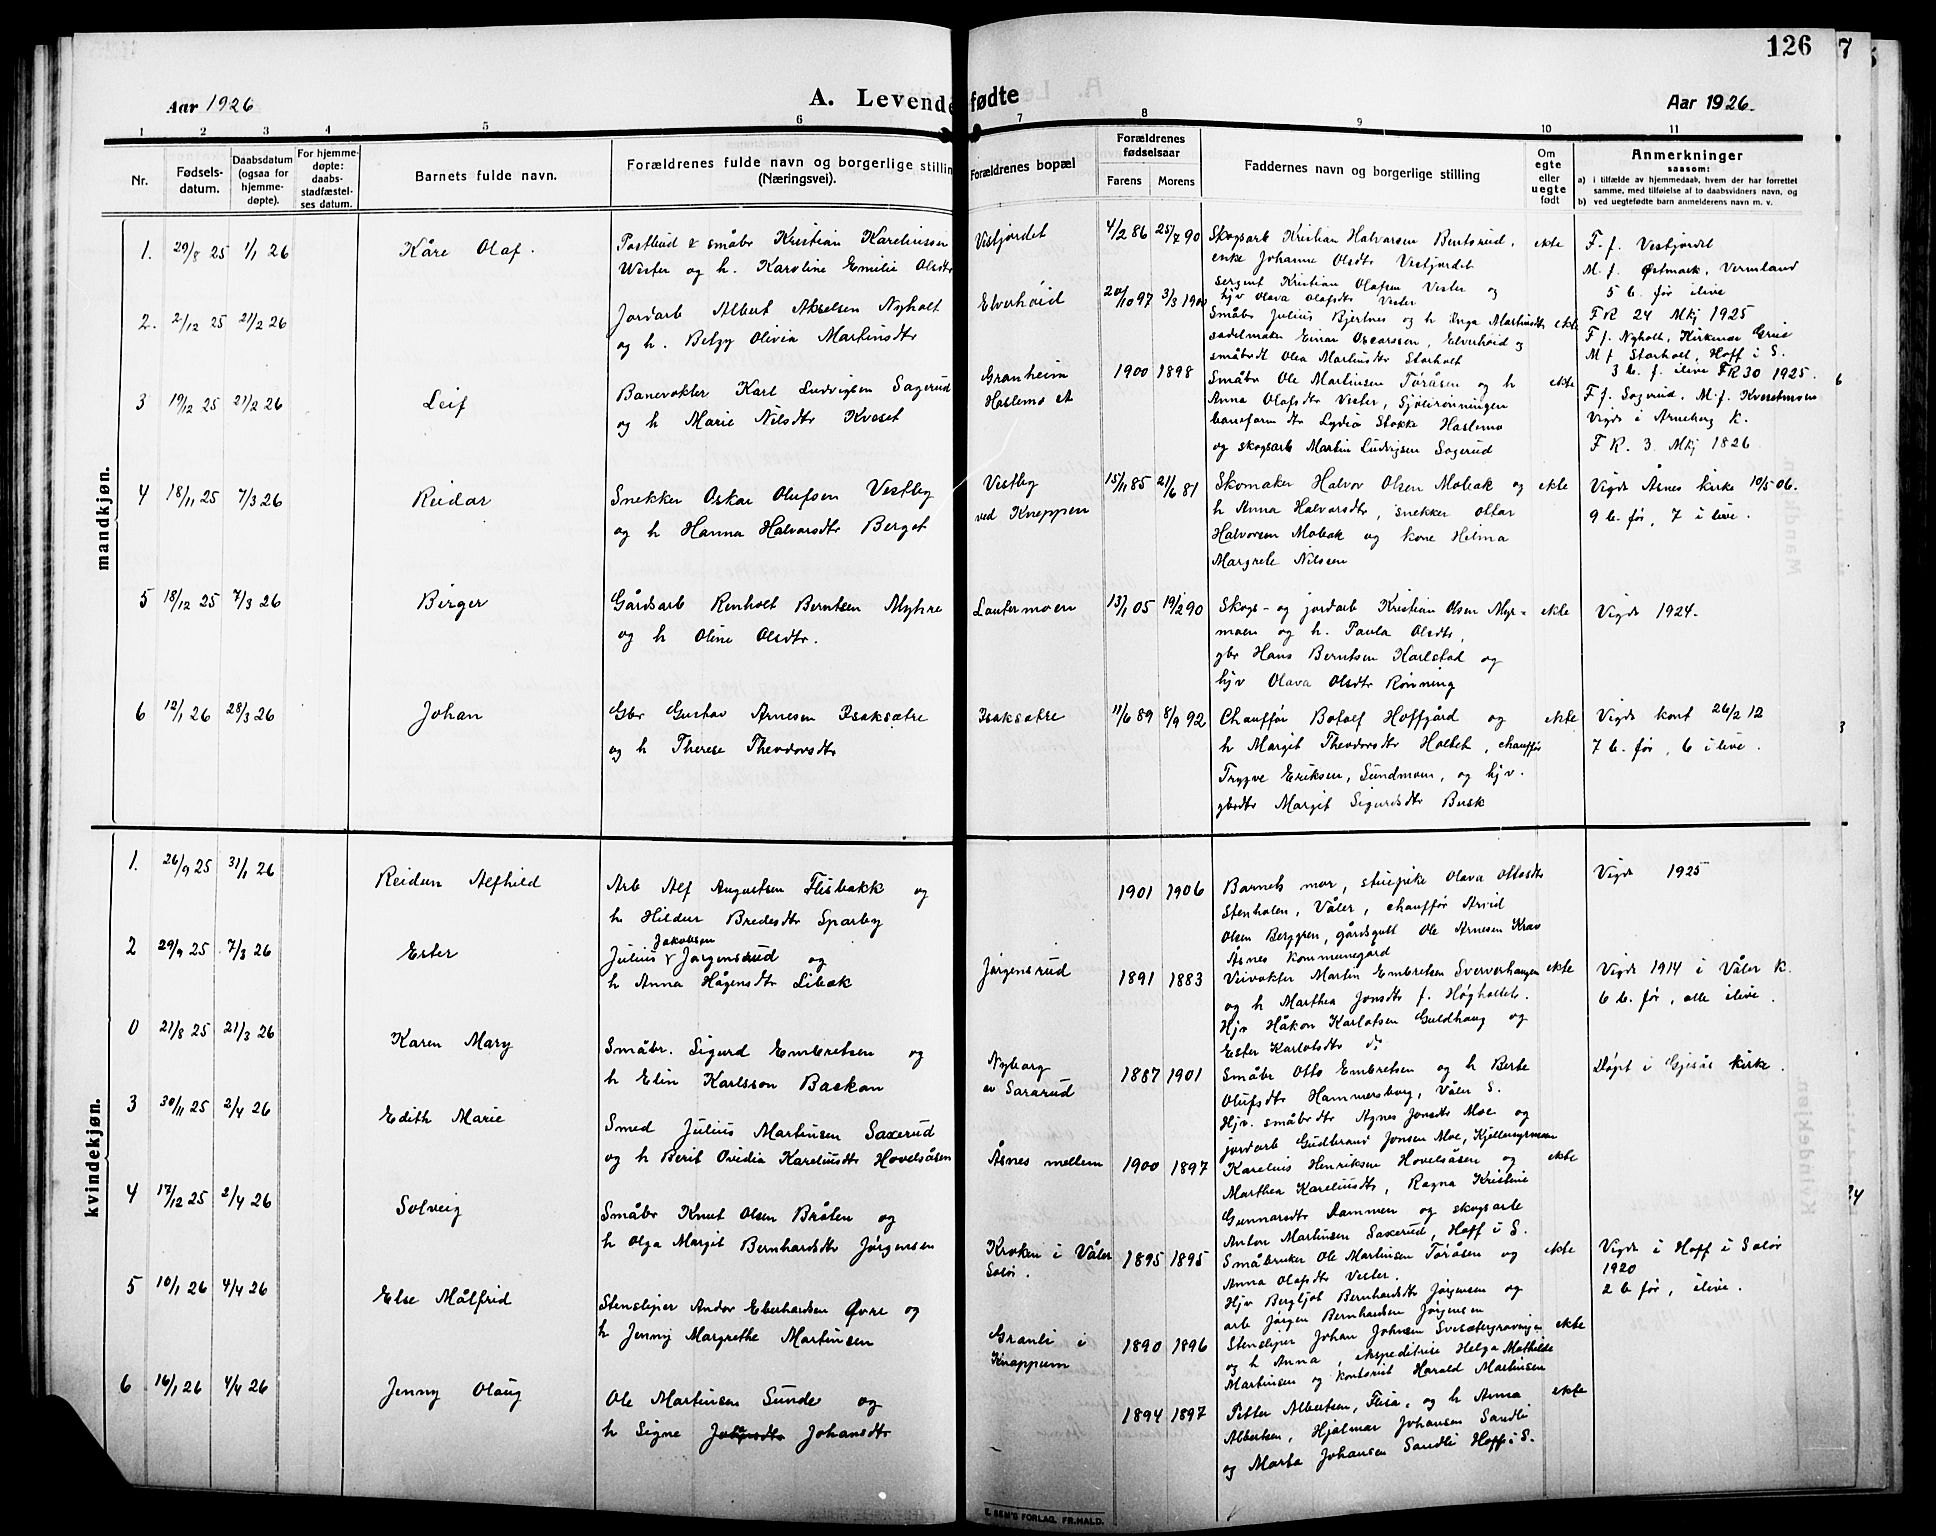 126
7
Aar 1926
A. Levende fødte
Aar 1926.
1 2 3 4 5 6 7 8 9 10 11
Nr.
Fødsels-
datum.
Daabsdatum
(ogsaa for
hjemme-
døpte).
For hjemme-
døpte:
daabs-
stadfæstel-
ses datum.
Barnets fulde navn.
Forældrenes fulde navn og borgerlige stilling
(Næringsvei).
Forældrenes bopæl
Forældrenes
fødselsaar
Farens Morens
Faddernes navn og borgerlige stilling
Om
egte
eller
uegte
født
Anmerkninger
saasom:
a) i tilfælde av hjemmedaab, hvem der har forrettet
samme, med tilføielse af to daabsvidners navn, og
b) ved uegtefødte barn anmelderens navn m. v.
mandkjøn.
1. 29/8 25 1/1 26 Kåre Olaf.
Postbud & småbr Kristian Kareliussen
Wester og h. Karoline Emilie Olsdtr
Vestjordet 4/2 86 25/7 90
Skogsarb Kristian Halvorsen Bentsrud,
enke Johanne Olsdtr Vestjordet
sergent Kristian Olafsen Vester og
hjv Olava Olafsdtr Vester
ekte
F. f. Vestjordet
M. f. Østmark, Vermland
5 b. før ilive
FR 24 Mkj 1925
2. 2/12 25 21/2 26
Jordarb Albert Akselsen Nyholt
og h. Betzy Olivia Martinsdtr
Elverhöid 20/10 97 3/3 1900
Småbr Julius Bjertnes og h Inga Martinsdtr
sadelmaker Einar Oscarssen, Elverhöid og
småbrdt Olea Martinsdtr Storholt
ekte
F f. Nyholt, Kirkenær Grue
M f Storholt, Hoff i S.
3 b. f. ilive FR 30 1925.
3 19/12 25 21/2 26 Leif
Banevokter Karl Ludvigsen Sagerud
og h Marie Nilsdtr Kveset
Granheim
Haslemo st
1900 1898
Småbr Ole Martinsen Toråsen og h
Anna Olafsdtr Vester, Sjölirönningen
baneform dtr Lydia Stokke Haslemo
og skogsarb Martin Ludvigsen Sagerud
ekte
F f. Sagerud, M. f. Kvesetmoen
Vigde i Arneberg K.
F R. 3. Mkj 1826
4 18/11 25 7/3 26 Reidar
Snekker Oskar Olufsen Vestby
og h Hanna Halvorsdtr Berget
Vestby
ved Kneppen
15/11 85 21/6 81
Skomaker Halvor Olsen Mobak og
h Anna Halvorsdtr, snekker Ottar
Halvorsen Mobak og kone Hilma
Margrete Nilssen
ekte
Vigde Åsnes kirke 10/5 06.
9 b. før, 7 i live.
5 18/12 25 7/3 26 Birger
Gårdsarb Renholt Berntsen Myhre
og h Oline Olsdtr.
Lautermoen 13/1 05 19/2 90
Skogs- og jordarb Kristian Olsen Myr-
moen og h. Paula Olsdtr,
gbr Hans Berntsen Karlstad og
hjv Olava Olsdtr Rönning
ekte Vigde 1924.
6 12/1 26 28/3 26 Johan
Gbr Gustav Arnesen Isaksætre
og h Therese Theodorsdtr
Isaksætre 11/6 89 8/9 92
Chauffør Botolf Hoffgård og
h Margit Theodorsdtr Holtet, chauffør
Trygve Eriksen, Sundmoen, og hjv.
gbrdtr Margit Sigurdsdtr Busk
ekte
Vigde kont 26/2 12
7 b. før, 6 i live.
kvindekjøn.
1. 26/9 25 31/1 26 Reidun Alfhild
Arb Alf Augustsen Flisbakk og
h Hildur Bredesdtr Sparby
1901 1906
Barnets mor, stuepike Olava Ottosdtr
Stenholen, Våler, chauffør Arvid
Olsen Berggren, gårdsgutt Ole Arnesen Krav
Åsnes kommunegård
Vigde 1925
2 29/9 25 7/3 26 Ester
Jakobsen
Julius Jørgensrud og
h Anna Hågensdtr Libæk
Jørgensrud 1891 1883
Veivokter Martin Embretsen Sververhaugen
og h Marthea Jonsdtr f. Høgholtet.
Hjv Håkon Karlotsen Guldhaug og
Ester Karlotsdtr do
ekte
Vigde 1914 i Våler K.
6 b. før, alle ilive.
0 21/8 25 21/3 26 Karen Mary
Småbr. Sigurd Embretsen og
h Elin Karlsson Backan
Nyborg
av Sararud
1887 1901
Småbr Otto Embretsen og h Berte
Olufsdtr Hammersborg, Våler S.
Hjv. småbrdtr Agnes Jonsdtr Moe og
jordarb Gudbrand Jonsen Moe, Kjellensyrmoen
Døpt i Gjesås kirke.
3 30/11 25 2/4 26 Edith Marie
Smed Julius Martinsen Saxerud
og h Berit Ovidia Kareliusdtr Hovelsåsen
Åsnes mellem 1900 1897
Karelius Henriksen Hovelsåsen og
Marthea Kareliusdtr, Ragna Kristine
Gunnarsdtr Dammen og skogsarb
Anton Martinsen Saxerud, Hoff i S.
ekte
4 17/12 25 2/4 26 Solveig
Småbr Knut Olsen Bråten og
h Olga Margit Bernhardsdtr Jörgensen
Kroken i Våler
Solør.
1895 1895
Småbruker Ole Martinsen Toråsen og
Anna Olafsdtr Vester.
Hjv Bergljot Bernhardsdtr Jørgensen og
arb Jørgen Bernhardsen Jørgensen
ekte
Vigde i Hoff i Solør
1920
2 b før, ilive.
5 10/1 26 4/4 26 Else Målfrid
Stensliper Andor Eberhardsen Øvre og
h Jenny Margrethe Martinsen
Granli i
Knappum
1890 1896
Stensliper Johan Johnsen Svesætergravingen
og h Anna, ekspeditrise Helga Mathilde
Martinsen og kontorist Harald Martinsen
ekte
6 16/1 26 4/4 26 Jenny Olaug
Ole Martinsen Sunde og
h Signe Johansdtr
1894 1897
Petter Albertsen, Flisa, og h Anna
Albertsen, Hjalmar Johansen Sandli
og Marta Johansen Sandli Hoff i S.
ekte
FORLAG, FR.HALD.